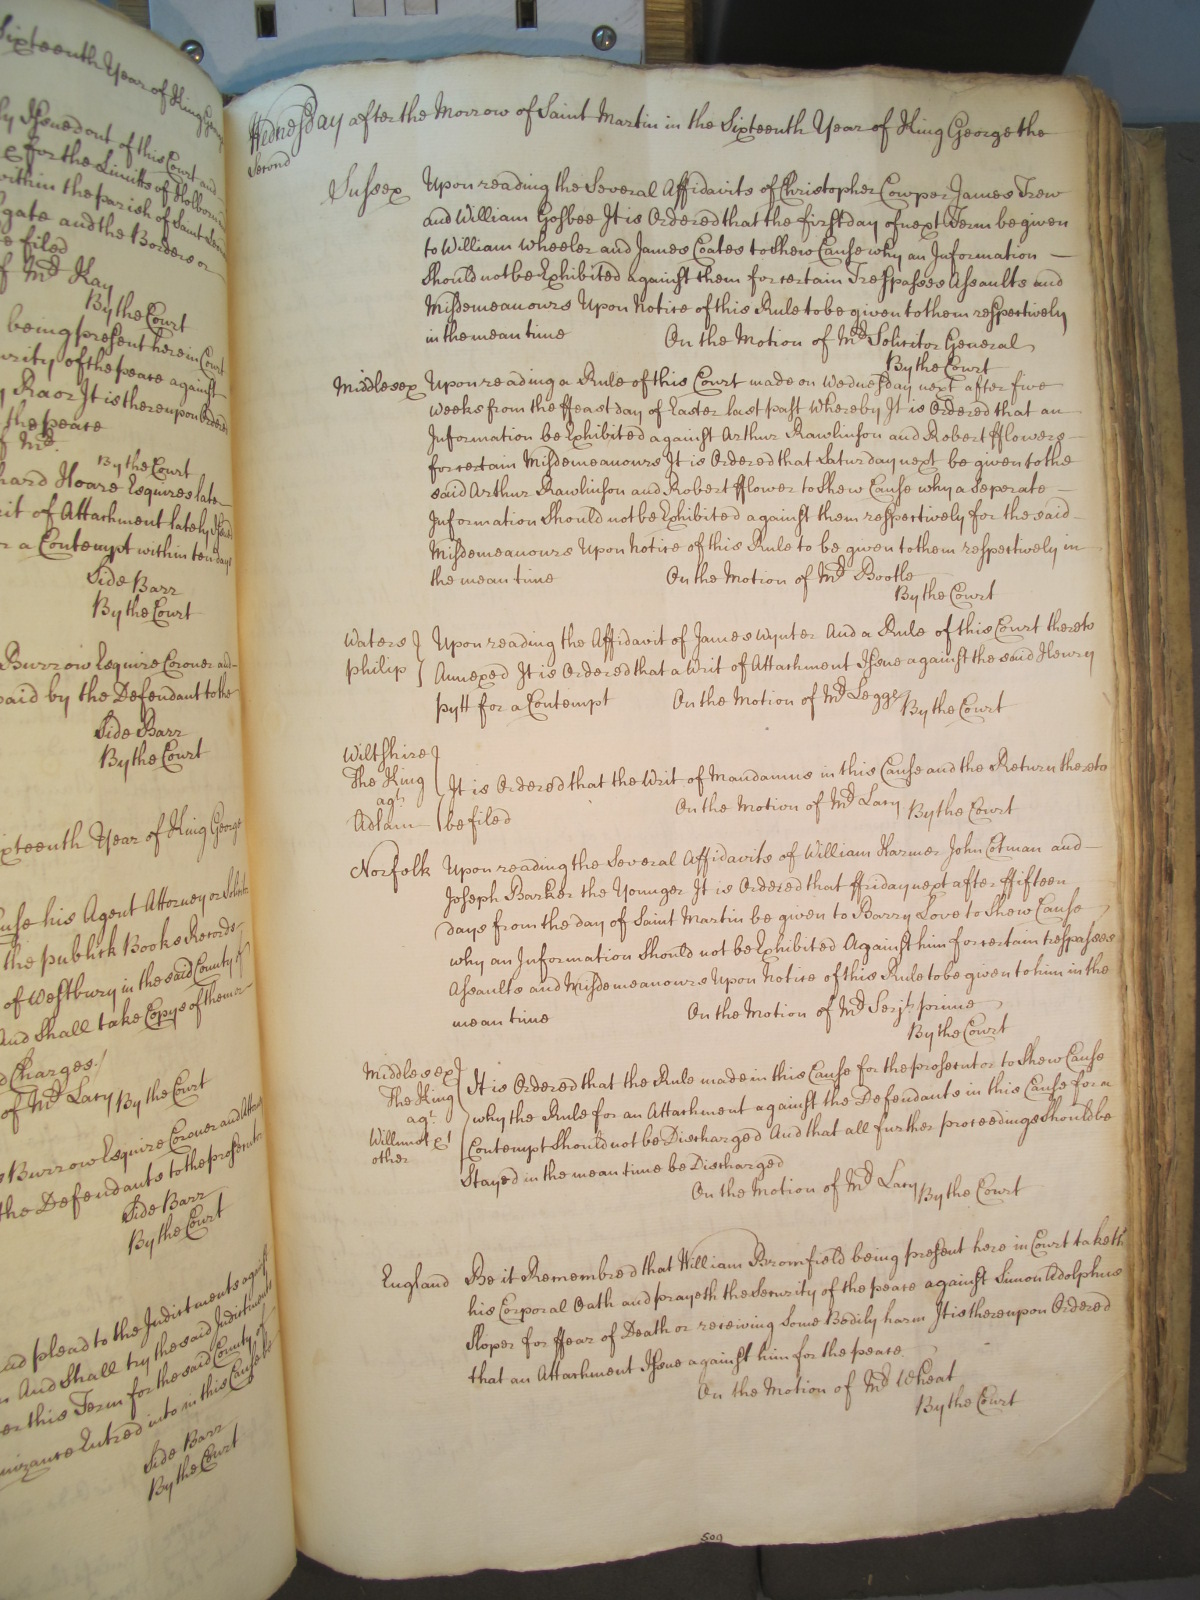 Sixteenth Year of King George
ly Issued out of this Court and
for the Limitts of Holborn
within the parish of Saint
gate and the Borders or
e filed
f Mr. Kay
By the Court
being present here in Court
urity of the peace against
It is thereupon Ordered
the peace
f Mr.
By the Court
hard Hoare Esquires late
rit of Attachment lately Issued
r a Contempt within ten days
Side Barr
By the Court
Burrow Esquire Coroner and
paid by the Defendant to the
Side Barr
By the Court
ixteenth Year of King George
use his Agent Attorney or
the publick Books Records
of Westbury in the said County of
And Shall take Copys of them or
d Charges
of Mr. Lacy By the Court
s Burrow Esquire Coroner and Attorney
the Defendants to the prosecutor
Side Barr
By the Court
and plead to the Indictments against
And Shall try the said Indictments
er this Term for the said County of
nizance Entred into in this Cause be
Side Barr
By the Court
Wednesday after the Morrow of Saint Martin in the Sixteenth Year of King George the
Second
Sussex Upon reading the Several Affidavits of Christopher Cowper James Trew
and William Gosbee It is Ordered that the first day of next Term be given
to William Wheeler and James Coates to shew Cause why an Information
Should not be Exhibited against them for certain Trespasses Assaults and
Misdemeanours Upon Notice of this Rule to be given to them respectively
in the mean time On the Motion of Mr. Solicitor General
By the Court
Middlesex Upon reading a Rule of this Court made on Wednesday next after five
weeks from the ffeast day of Easter last past Whereby It is Ordered that an
Information be Exhibited against Arthur Rawlinson and Robert fflowers
for certain Misdemeanours It is Ordered that Saturday next be given to the
said Arthur Rawlinson and Robert fflower to Shew Cause why a Seperate
Information Should not be Exhibited against them respectively for the said
Misdemeanours Upon Notice of this Rule to be given to them respectively in
the mean time On the Motion of Mr. Bootle
By the Court
Waters } Upon reading the Affidavit of James Wynter And a Rule of this Court thereto
Philip } Annexed It is Ordered that a Writ of Attachment Issue against the said Henry
pytt for a Contempt On the Motion of Mr. Legge By the Court
Wiltshire
The King It is Ordered that the Writ of Mandamus in this Cause and the Return thereto
agt.
Adlam be filed On the Motion of Mr. Lacy By the Court
Norfolk Upon reading the Several Affidavits of William Harmer John Cotman and
Joseph Barker the Younger It is Ordered that ffriday next after ffifteen
days from the day of Saint Martin be given to Barry Love to Shew Cause
why an Information Should not be Exhibited Against him for certain trespasses
Assaults and Misdemeanours Upon Notice of this Rule to be given to him in the
mean time On the Motion of Mr. Serjt. prime
By the Court
Middlesex It is Ordered that the Rule made in this Cause for the prosecutor to Shew Cause
The King why the Rule for an Attachment against the Defendants in this Cause for a
agt.
Willmot & Contempt Should not be Discharged And that all further proceedings Should be
other Stayed in the mean time be Discharged
On the Motion of Mr. Lacy By the Court
England Be it Remembred that William Bromfield being present here in Court taketh
his Corporal Oath and prayeth the Security of the peace against Simon Adolphus
Sloper for ffear of Death or receiving Some Bodily harm It is thereupon Ordered
that an Attachment Issue against him for the peace
On the Motion of Mr. Wheat
By the Court